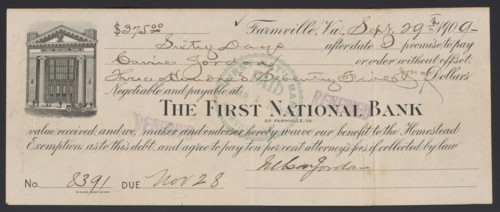 $375.00 Farmville, Va., Sept 29th 1909
Sixty Days after date I promise to pay
Carrie Jordan or order without offset
Three Hundred & Seventy Five Dollars
Negotiable and payable at
THE FIRST NATIONAL BANK
OF FARMVILLE, VA.
value received, and we, maker and endorser hereby waive our benefit to the Homestead
Exemption as to this debt, and agree to pay ten per cent attorneys fees if collected by law
No. 8391 DUE Nov 28 Jordan
PAID